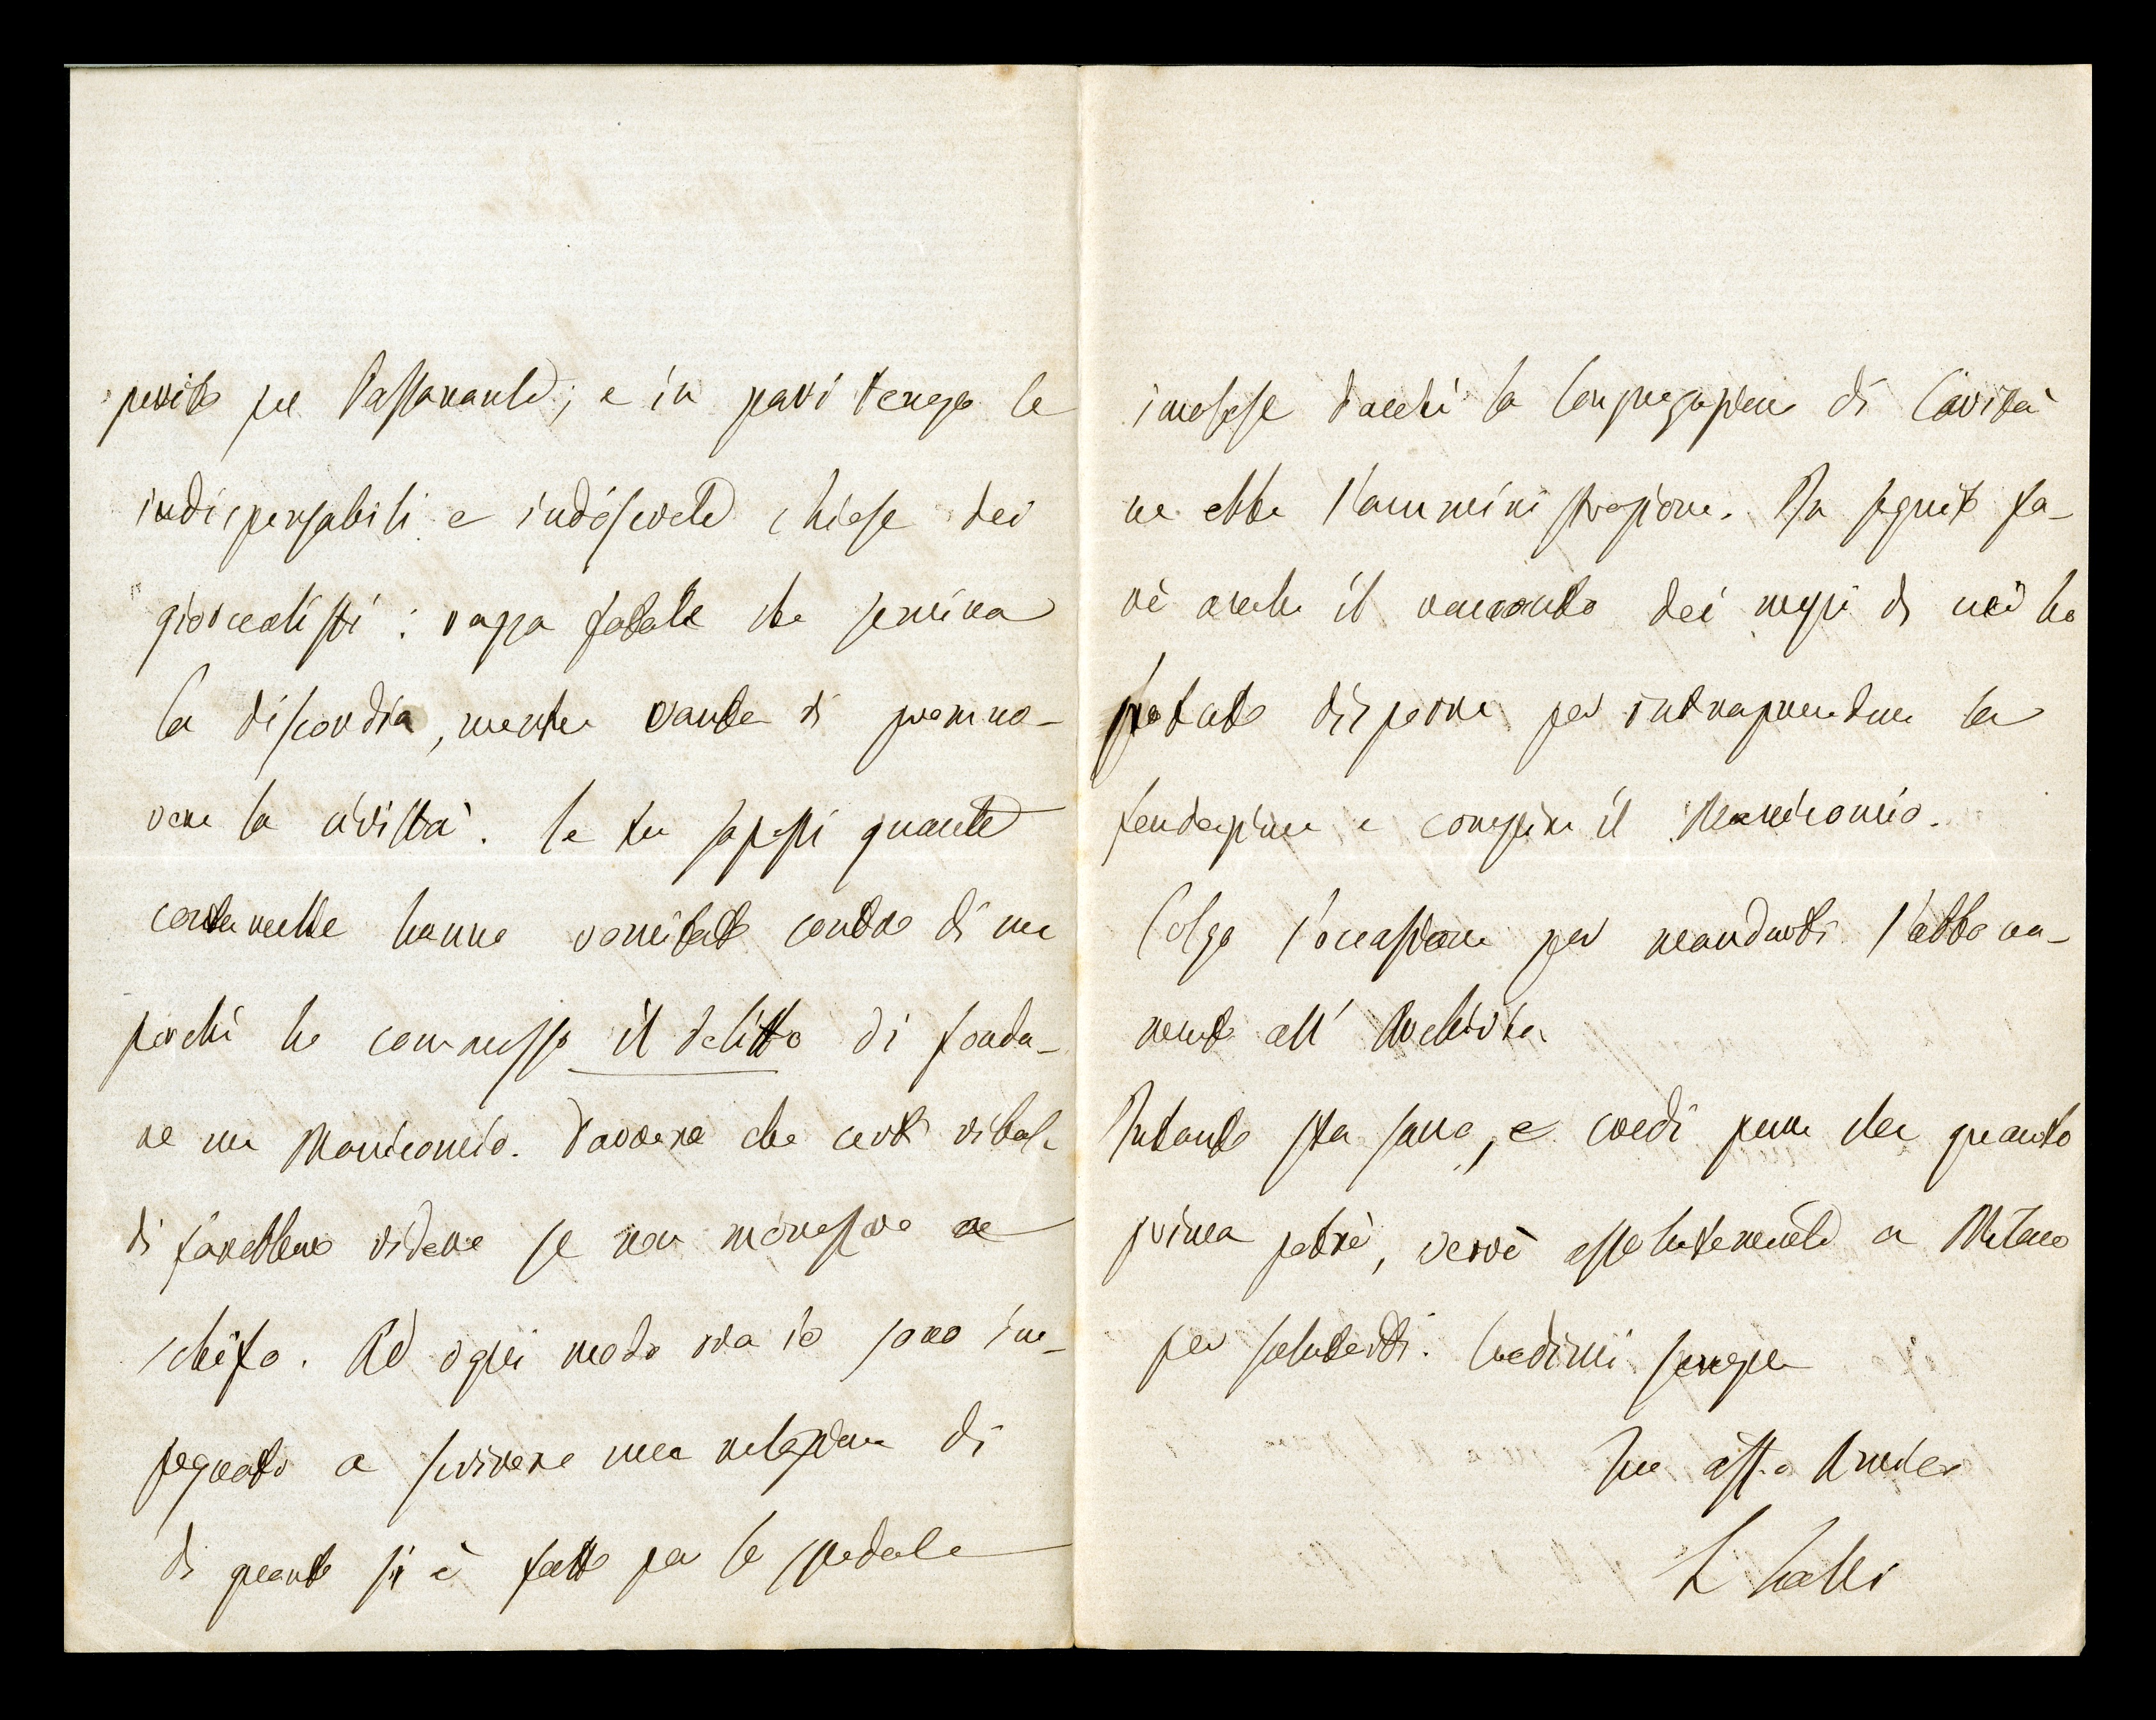 perito pel Passanante; e in pari tempo le
indispensabili e indiscrete chiose dei
giornalisti: razza fatale che semina
la discordia, mentre vanta di promuo-
vere la civiltà. Se tu sapessi quante
contumelie hanno vomitato contro di me
perchè ho commesso il delitto di fonda-
re un Manicomio. Davvero che certi ribal-
di farebbero ridere se non movessero a
schifo. Ad ogni modo ora io sono im-
pegnato a scrivere una relazione di
di quanto si è fatto per lo spedale
imolese dacchè la Congregazione di Carità
ne ebbe l'amministrazione. In seguito fa-
rò anche il racconto dei mezzi di cui ho
potuto disporre per intraprendere la
fondazione e compire il Manicomio.
Colgo l'occasione per mandarti l'abbona-
mento all' Archivio
Intanto sta sano, e credi pure che quanto
prima potrò, verrò assolutamente a Milano
per salutarti. Credimi sempre
Tuo aff.o Amico
L Lolli